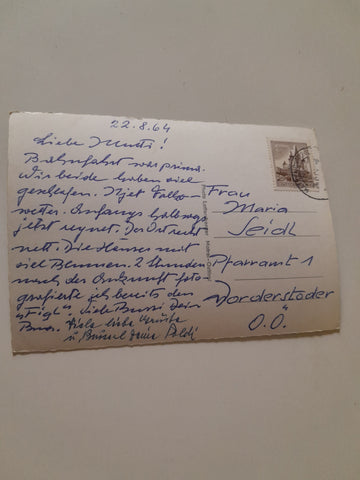 22.8.64
Liebe Mutti!
Bahnfahrt war prima.
Wir beide haben viel
geschlafen. Jetzt
wetter. Anfangs halbwegs
jetzt regnet. Der Ort recht
nett. Die Häuser mit
viel Blumen. 2 Stunden
nach der Ankunft foto-
grafierte ich bereits den
"Figl". Liebe Bussi Dein
Viele liebe Grüße
u. Bussi Deine Poldi
Frau
Maria
Seidl
Pfarramt 1
Vorderstoder
O.Ö.